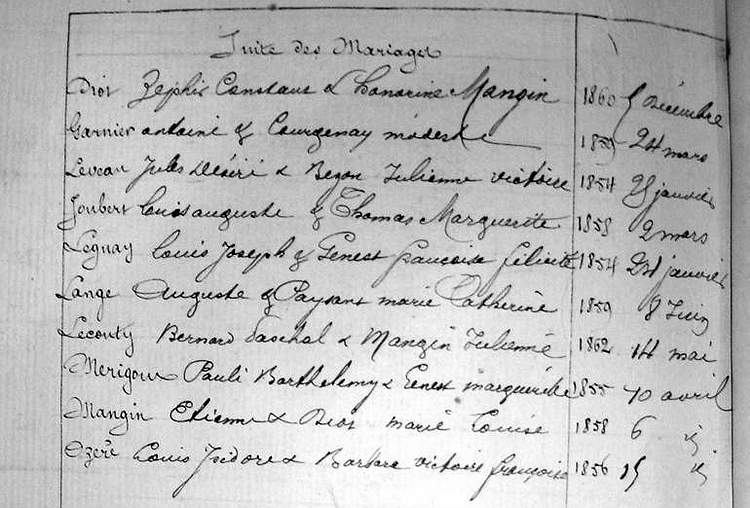 Suite des Mariages
Diot Zephir Constant & honorine Mangin 1860 5 Décembre
Garnier antoine & Courgenay modeste 1859 24 mars
Leveau Jules Désiré & Bezon Julienne victoire 1854 25 janvier
Joubert Louis auguste & Thomas Marguerite 1858 2 mars
Legnay Louis Joseph & Genest françoise félicité 1854 24 janvier
Lange Auguste & Paysant marie Catherine 1859 8 Juin
Lecouty Bernard Paschal & Mangin Julienne 1862 14 mai
Merigoux Pauli Barthelemy & Genest marguerite 1855 10 avril
Mangin Etienne & Diot marie Louise 1858 6 id
Ozeré Louis Isidore & Barbare victoire françoise 1856 15 id